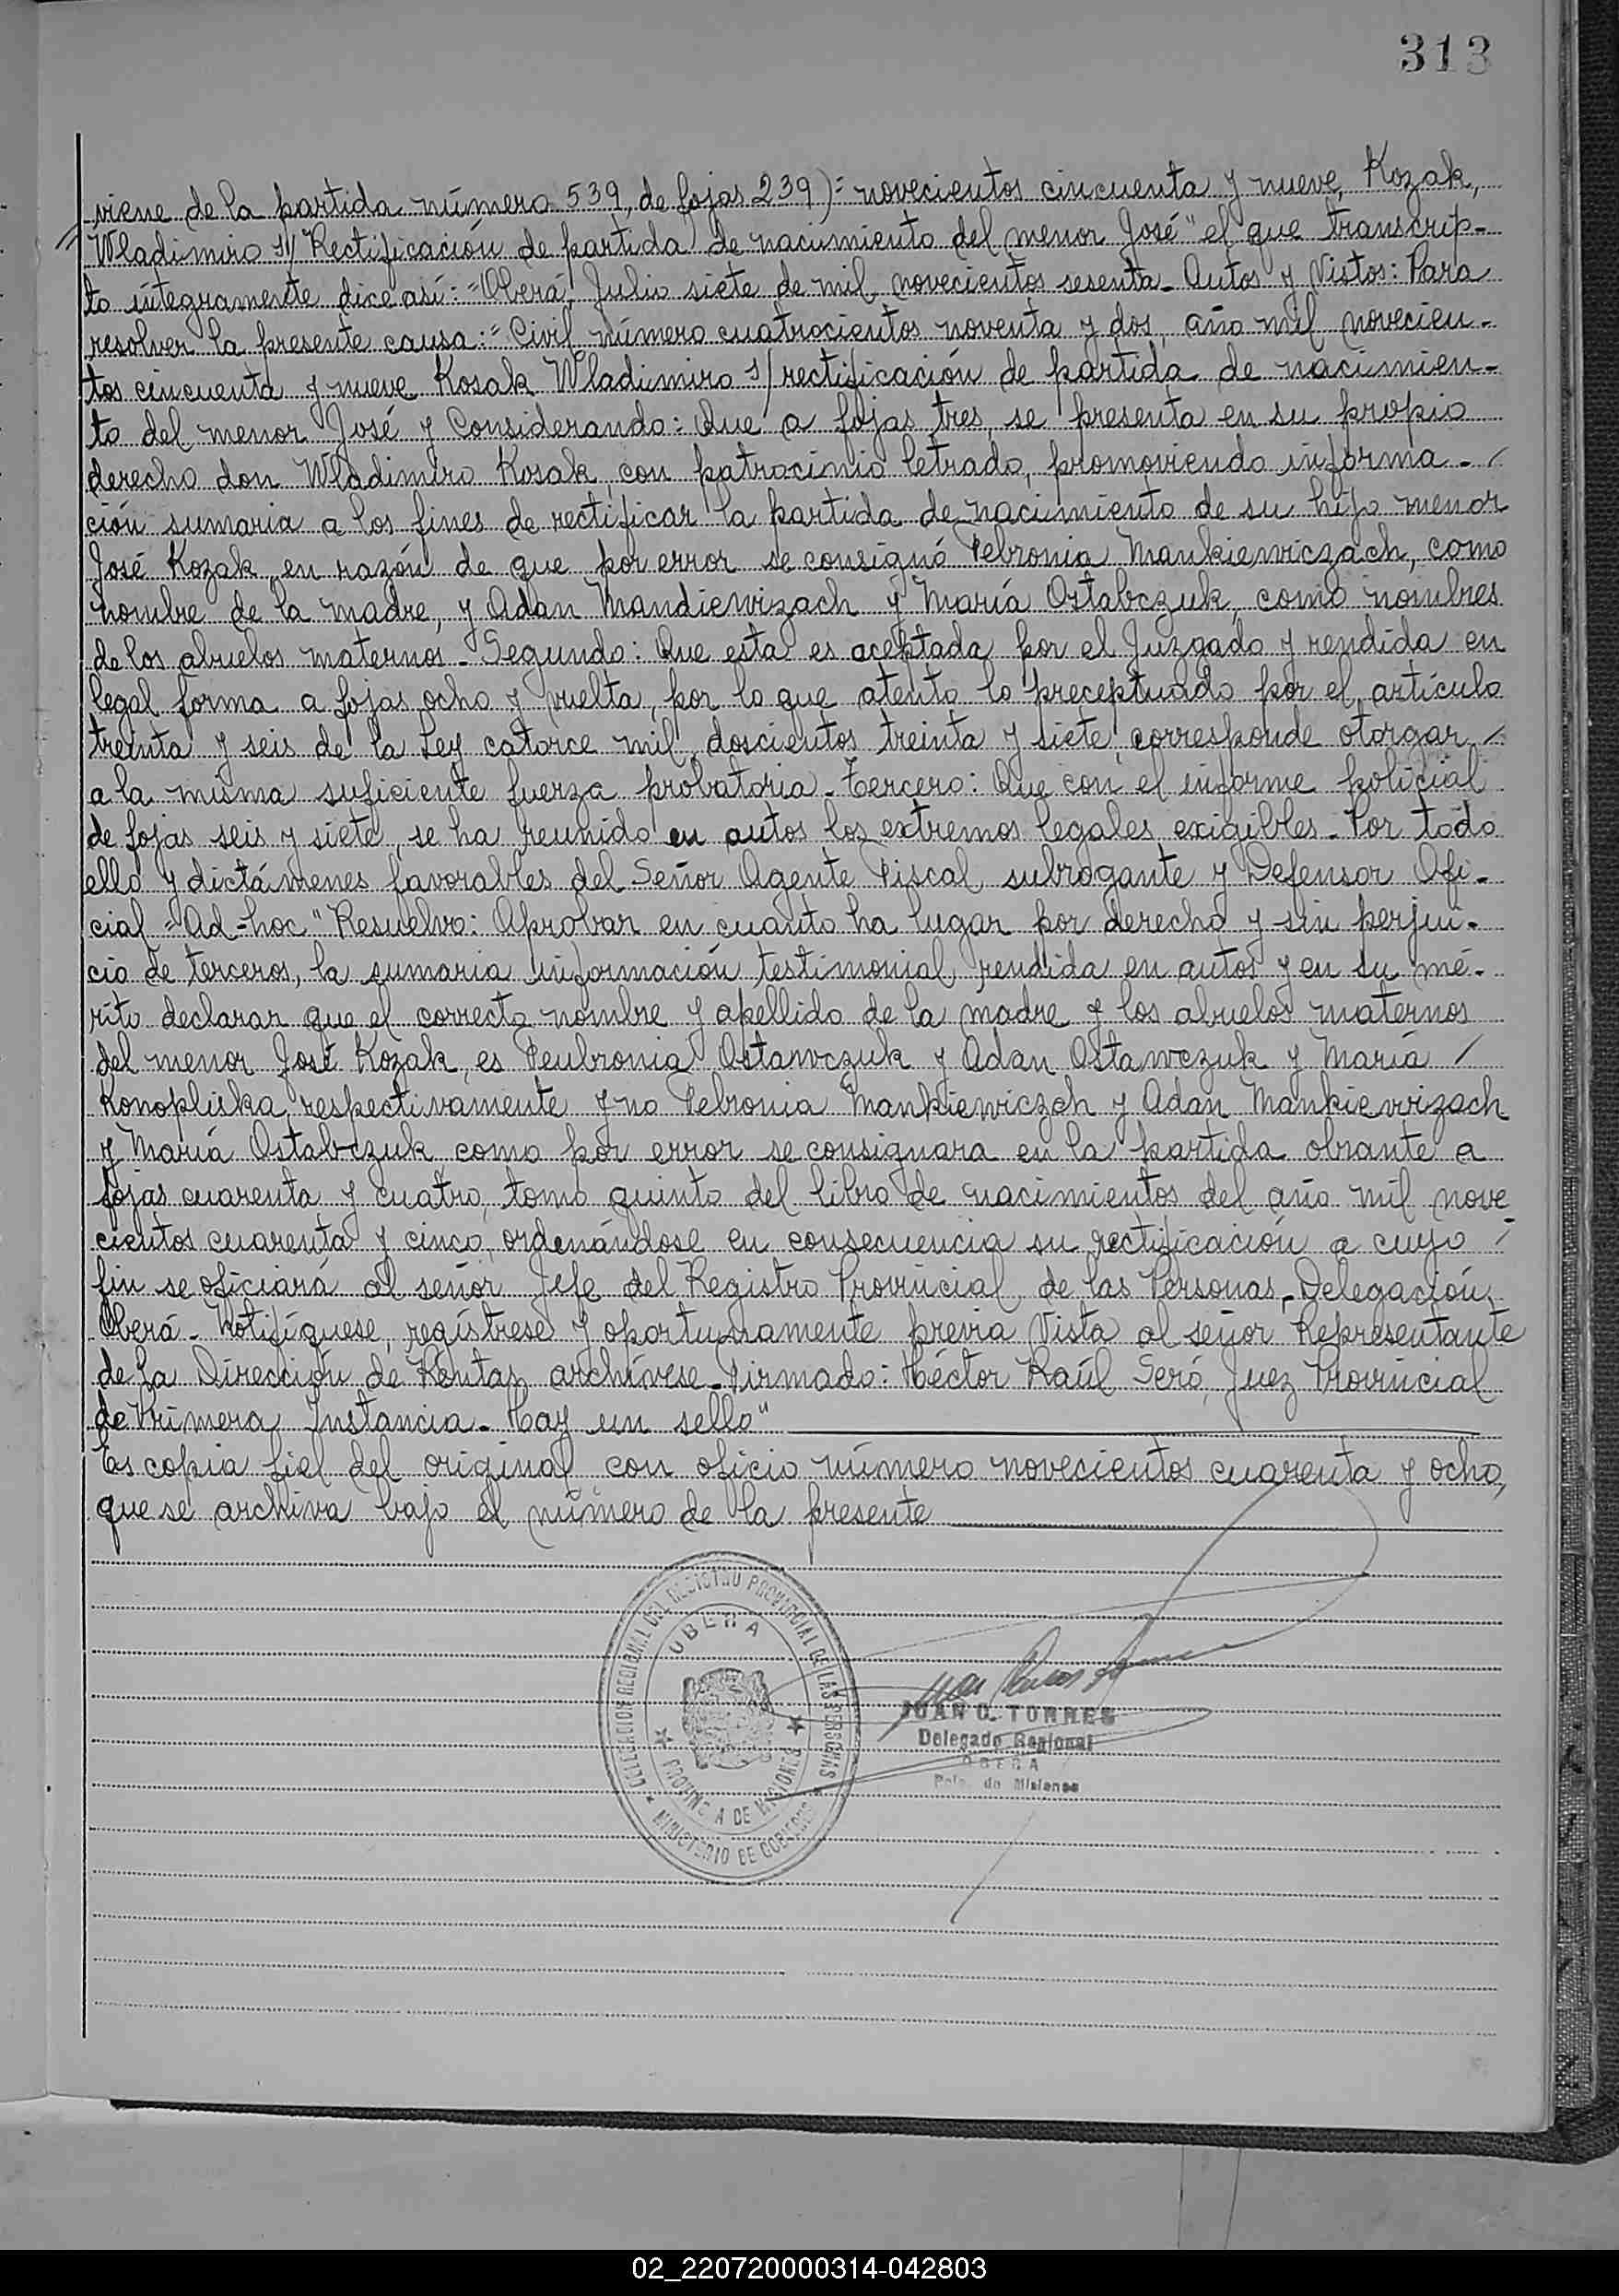 313
viene de la partida número 539, de fojas 239):= novecientos cincuenta y nueve, Kozak,
Wladimiro s/ Rectificación de partida de nacimiento del menor José" el que transcrip-
to íntegramente dice así:="Oberá, Julio siete de mil novecientos sesenta.- Autos y Vistos: Para
resolver la presente causa:=Civil número cuatrocientos noventa y dos, año mil novecien-
tos cincuenta y nueve Kosak Wladimiro s/rectificación de partida de nacimien-
to del menor José y Considerando: Que a fojas tres, se presenta en su propio
derecho don Wladimiro Kosak, con patrocinio letrado, promoviendo informa- /
ción sumaria a los fines de rectificar la partida de nacimiento de su hijo menor
José Kozak, en razón de que por error se consignó Febronia Mankiewiczach, como
nombre de la madre, y Adan Mandiewizach y María Ostabczuk, como nombres
de los abuelos maternos.- Segundo: Que esta es aceptada por el Juzgado y rendida en
legal forma a fojas ocho y vuelta, por lo que atento lo preceptuado por el artículo
treinta y seis de la Ley catorce mil doscientos treinta y siete, corresponde otorgar /
a la misma suficiente fuerza probatoria.- Tercero: Que con el informe policial
de fojas seis y siete, se ha reunido en autos los extremos legales exigibles.- Por todo
ello y dictámenes favorables del Señor Agente Fiscal subrogante y Defensor Ofi-
cial =Ad-hoc" Resuelvo: Aprobar en cuanto ha lugar por derecho y sin perjui-
cio de terceros, la sumaria información testimonial, rendida en autos y en su mé-
rito declarar que el correcto nombre y apellido de la madre y los abuelos maternos
del menor José Kozak, es Feubronia Ostawczuk y Adan Ostawczuk y María /
Konopliska, respectivamente y no Febronia Mankiewiczch y Adan Mankiewizach
y María Ostabczuk como por error se consignara en la partida obrante a
fojas cuarenta y cuatro, tomo quinto del libro de nacimientos del año mil nove-
cientos cuarenta y cinco, ordenándose en consecuencia su rectificación a cuyo /
fin se oficiará al señor Jefe del Registro Provincial de las Personas, Delegación
Oberá.- Notifíquese, regístrese y oportunamente previa Vista al señor Representante
de la Dirección de Rentas, archívese.- Firmado: Héctor Raúl Seró, Juez Provincial
de Primera Instancia.- Hay un sello"
Es copia fiel del original, con oficio número novecientos cuarenta y ocho,
que se archiva bajo el número de la presente
DELEGACION REGIONAL DEL REGISTRO PROVINCIAL DE LAS PERSONAS
OBERA
PROVINCIA DE MISIONES
MINISTERIO DE GOBIERNO
JUAN C. TORRES
Delegado Regional
OBERA
Pcia. de Misiones
02_220720000314-042803